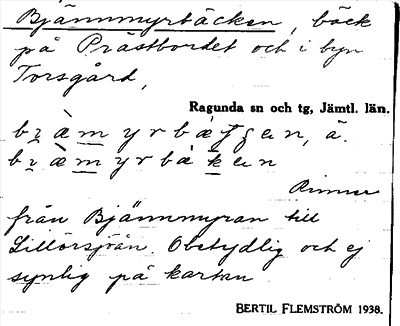 Bjännmyrbäcken, bäck
på Prästbordet och i byn
Torsgård,
Ragunda sn och tg, Jämtl. län.
Rinner
från Bjännmyran till
Lillörsjön. Obetydlig och ej
synlig på kartan
BERTIL FLEMSTRÖM 1938.